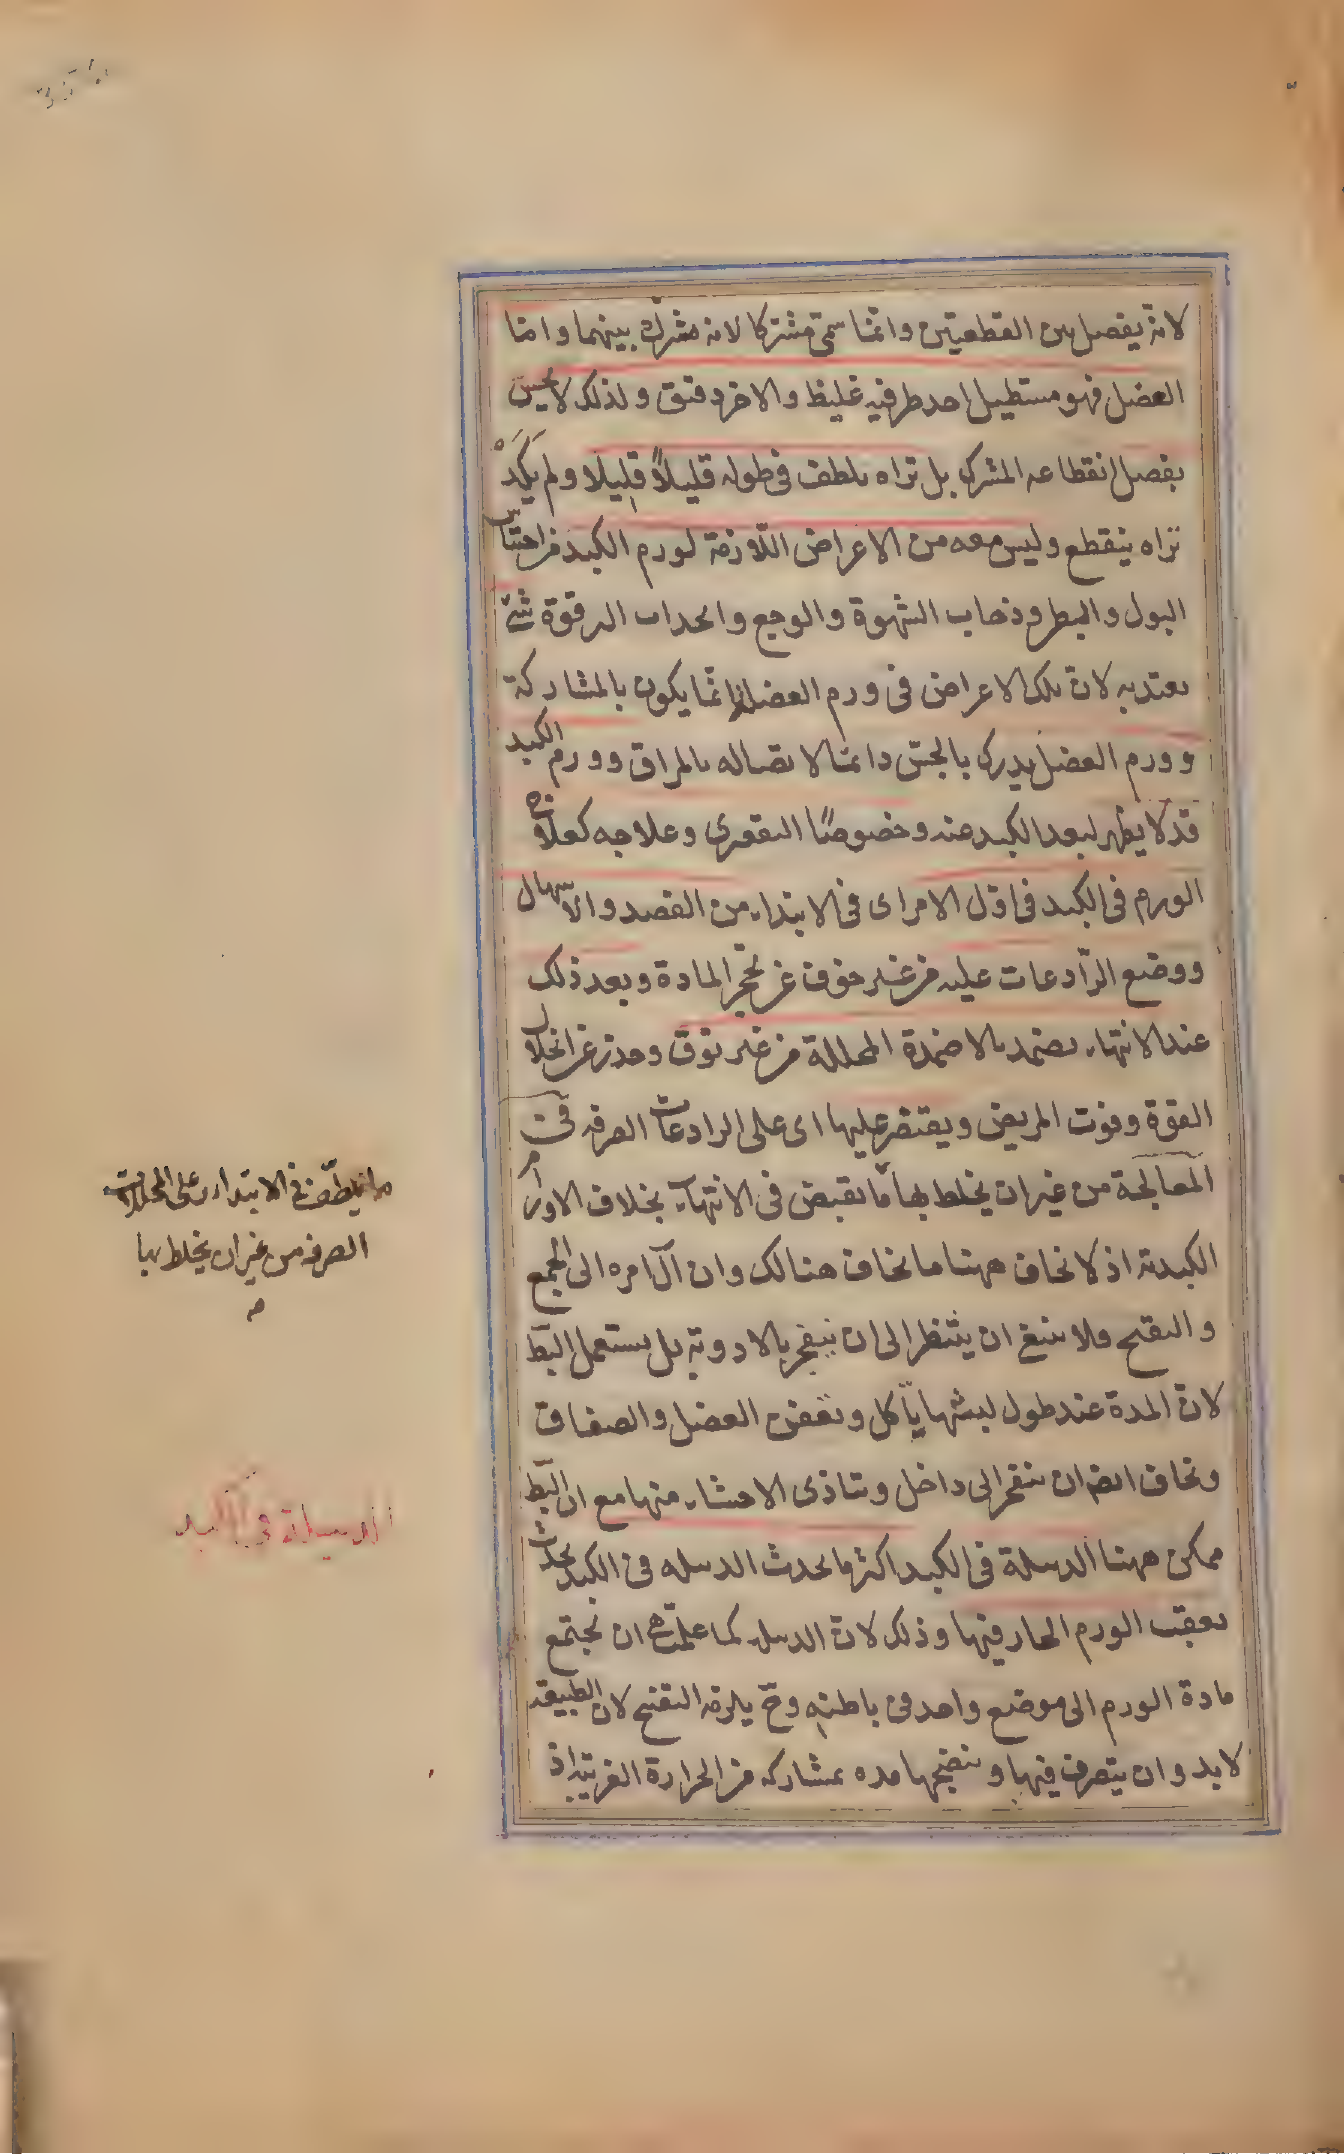 لانه يفصل بين القطعيتن وانمّا سمّى مشتركا لانه مشترك بينهما وامّا
العضل فهو مستطيل احد طرفيه غليظ والاخر دقيق ولذلك لا يحسّ
بفصل انقطاعه المشترك بل تراه يلطف فى طوله قليلاً قليلا ولم يكد
تراه ينقطع وليس معه من الاعراض اللّازمة لورم الكبد من احتباس
البول والبطن وذهاب الشهوة والوجع وانجذاب الترقوة شئ
يعتد به لان تلك الاعراض فى ورم العضل انمّا يكون بالمشاركة
وورم العضل يدرك بالجسّ دائمّا لاتصاله بالمراق وورم الكبد
قد لا يظهر لبعد الكبد عنه وخصوصًا التقعيرى وعلاجه كعلاج
الورم فى الكبد فى اوّل الامر اى فى الابتداء من الفصد والاسهال
ووضع الرّادعات عليه من غير خوف عن تحجر المادة وبعد ذلك
عند الانتهاء يضمد بالاضمدة المحللة من غير توق وحذر عن انحلال
القوة وفوت المريض ويقتصر عليها اى على الرادعات الصرفه فى
المعالجة من غير ان يخلط بها ما يقبض فى الانتهاء بخلاف الاورام
الكبدية اذ لا نخاف ههنا ما نخاف هنالك وان آل امره الى الجمع
والتقيح ولا ينبغ ان ينتظر الى ان ينفجر بالادوية بل يستعمل البّط
لان المدة عند طول لبثها يأكل ويعفن العضل والصفاق
ونخاف ايضا ان ينفجر الى داخل ويتاذى الاحشاء منها مع ان البّط
ممكن ههنا الدبيلة فى الكبد اكثر ما يحدث الدبيله فى الكبد يحدث
بعقب الورم الحار فيها وذلك لان الدبيله كما علمت هى ان تجتمع
مادة الورم الى موضع واحد فى باطنه وح يلزمه التقيح لان الطبيعة
لابد وان يتصرف فيها وينضجها مده بمشاركه من الحرارة الغريبة اذ
الصرفه من غير ان يخلط بها
الدبيلة فى الكبد